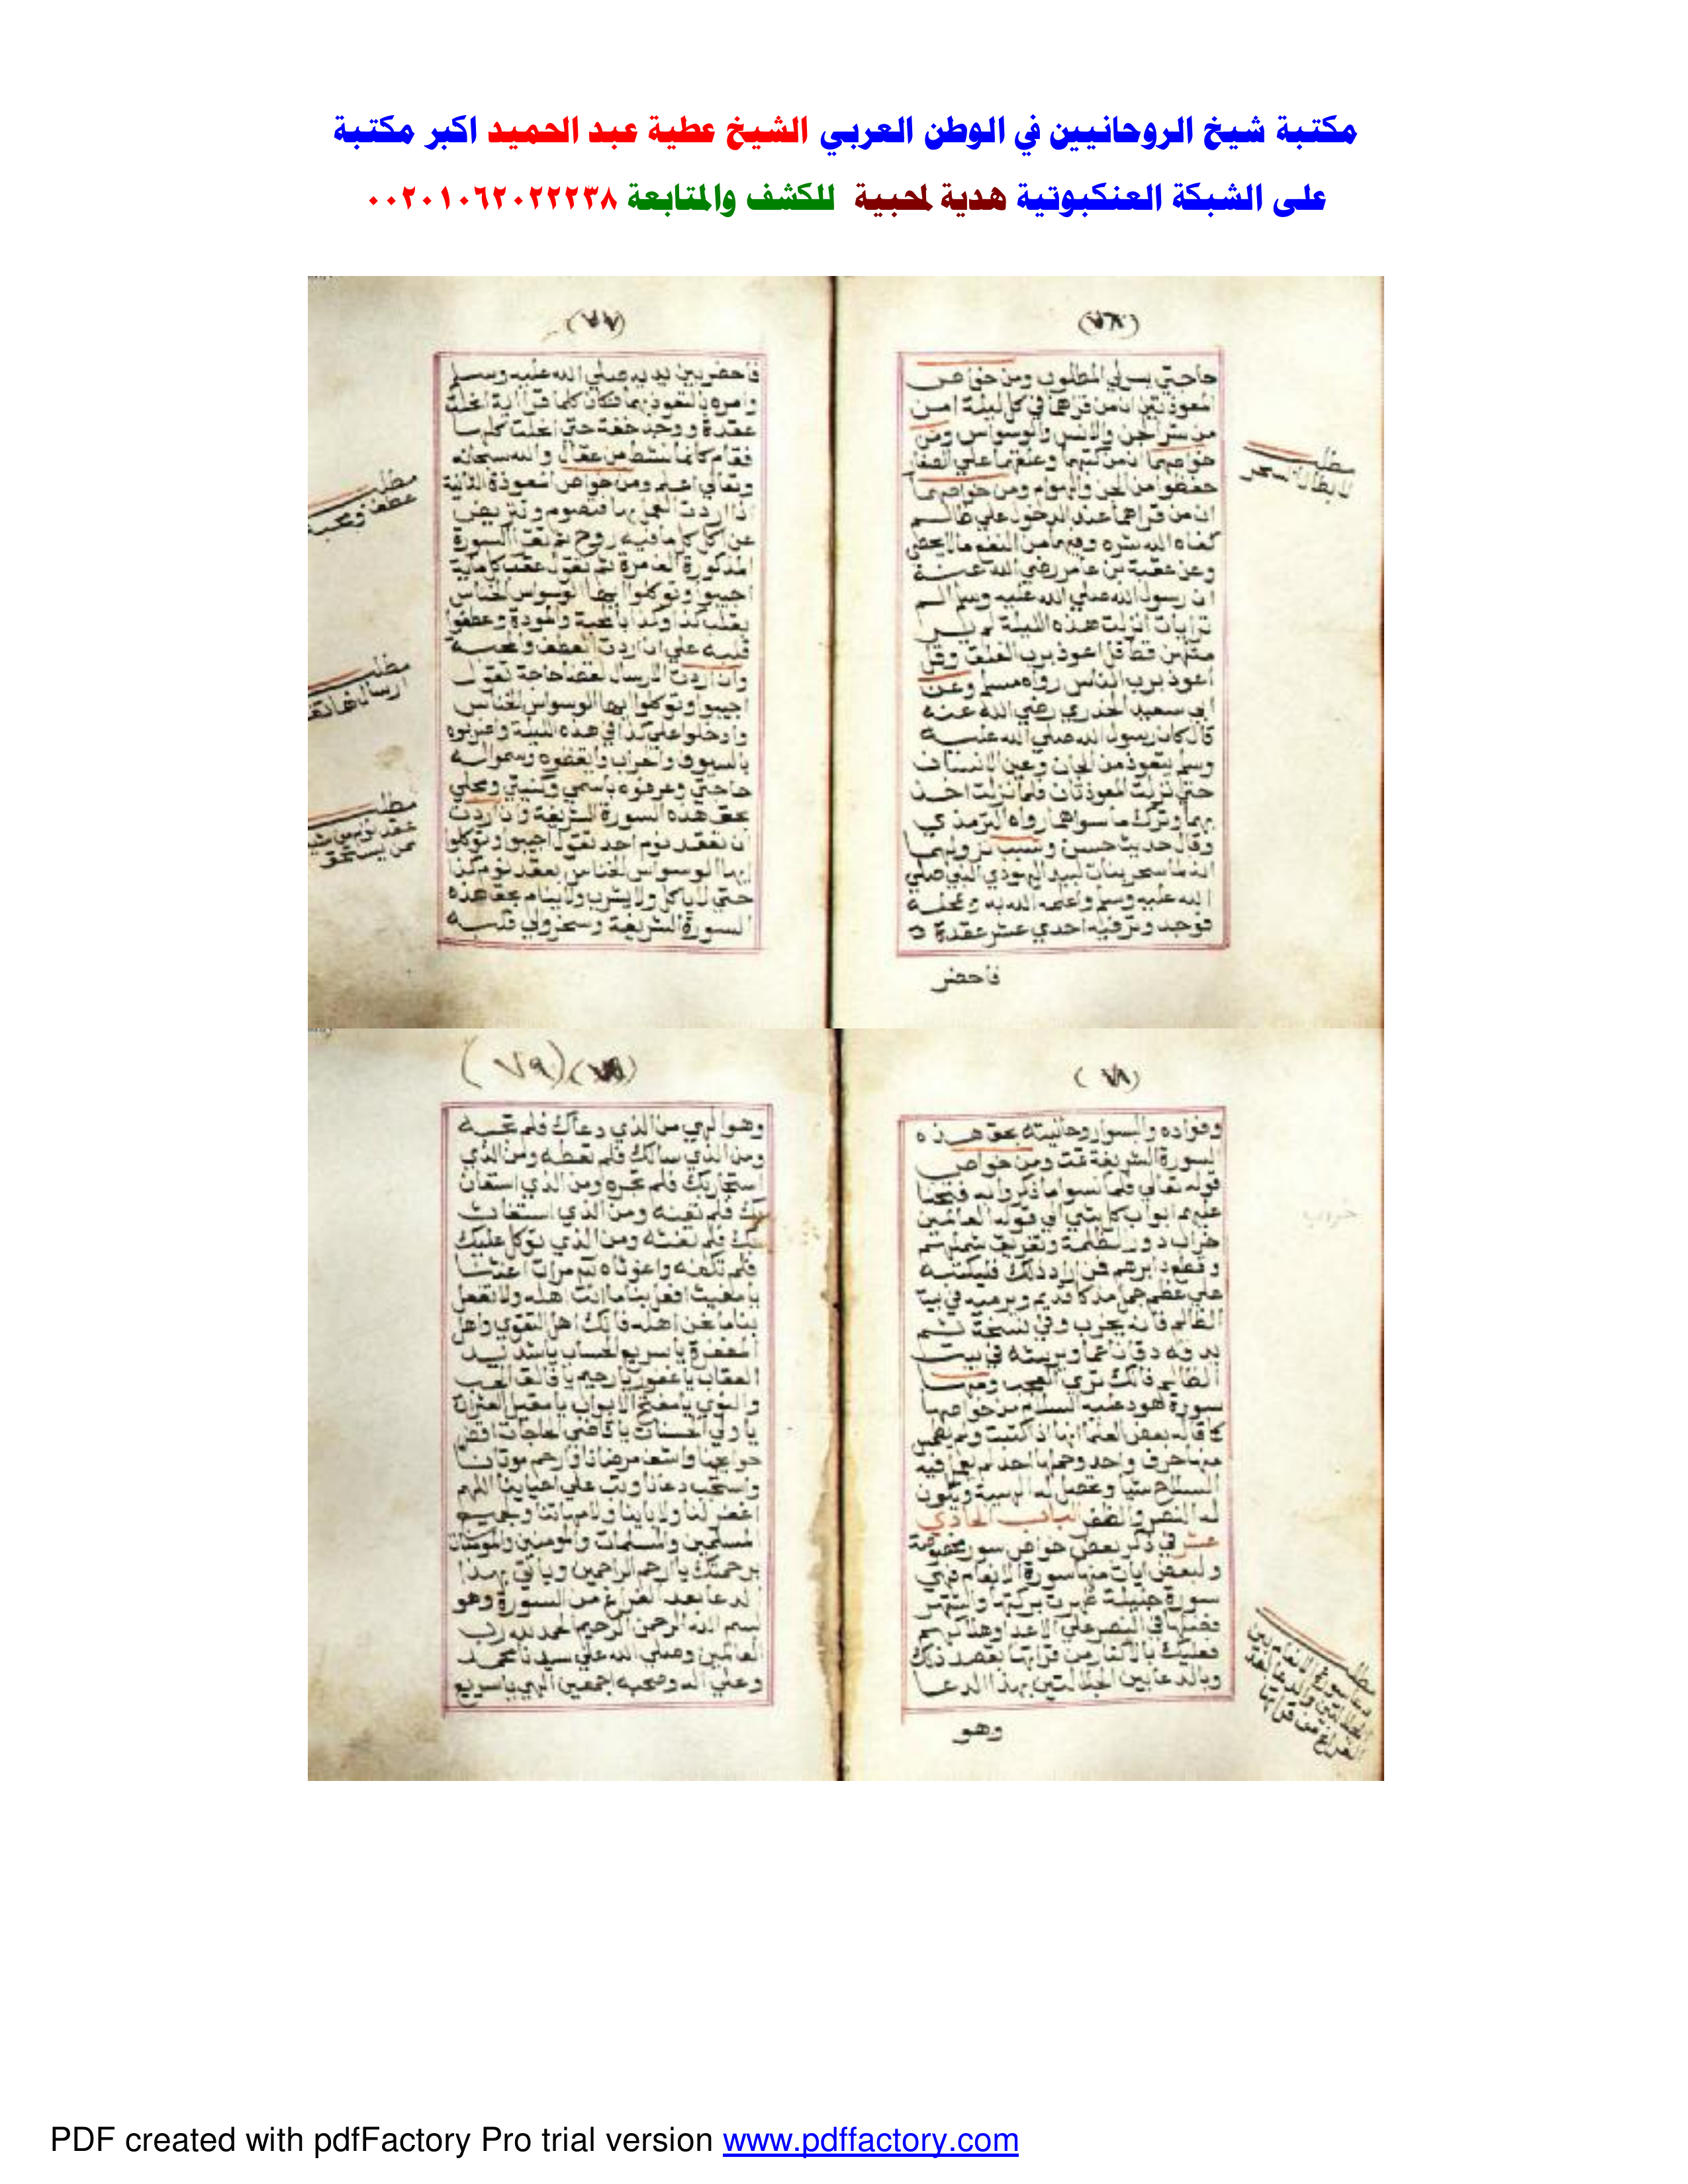 مكتبة شيخ الروحانيين في الوطن العربي الشيخ عطية عبد الحميد اكبر مكتبة
على الشبكة العنكبوتية هدية لمحبية للكشف والمتابعة ٠٠٢٠١٠٦٢٠٢٢٢٣٨
حاجتي يسر لي المطلوب ومن خواص
المعوذتين ان من قراهما في كل ليلة امن
من شر الجن والانس والوسواس ومن
خواصهما ان من كتبهما وعلقهما علي
حفظوا من الجن والهوام ومن خواصهما
ان من قراهما عند الدخول علي ظالم
كفاه الله شره وفيهما من النفع ما لا يحصي
وعن عقبة بن عامر رضي الله عنه
ان رسول الله صلي الله عليه وسلم الم
تر ايات انزلت هذه الليلة لم ير
مثلهن قط قل اعوذ برب الفلق وقل
اعوذ برب الناس رواه مسلم وعن
ابي سعيد الخدري رضي الله عنه
قال كان رسول الله صلي الله عليه
وسلم يتعوذ من الجان وعين الانسان
حتي نزلت المعوذتان فلما نزلت اخذ
بهما وترك ما سواهما رواه الترمذي
وقال حديث حسن وسبب نزولهما
انه لما سحر بنات لبيد اليهودي النبي صلي
الله عليه وسلم واعلمه الله به وبمحله
فوجد وتر فيه احدي عشر عقدة
فاحضر
مطلب
لابطال السحر
فاحضر بين يديه صلي الله عليه وسلم
وامره بالتعوذ بهما فكان كلما قرا اية انحلت
عقدة ووجد خفة حتي انحلت كلها
فقام كانما نشط من عقال والله سبحانه
وتعالي اعلم ومن خواص المعوذة الثانية
اذا اردت العمل بها فتصوم وتريض
عن اكل كلما فيه روح ثم تقرا السورة
المذكورة الف مرة ثم تقول عقب كل ماية
اجيبوا وتوكلوا ايها الوسواس الخناس
بقلب كذا وكذا بالمحبة والمودة وعطفوا
قلبه علي ان اردت العطف والمحبة
وان اردت الارسال لقضا حاجة تقول
اجيبوا وتوكلوا ايها الوسواس الخناس
وادخلوا علي كذا في هذه الليلة واضربوه
بالسيوف والحراب وايقظوه وسموا له
حاجتي وعرفوه باسمي وكنيتي ومحلي
بحق هذه السورة الشريفة وان اردت
ان تعقد نوم احد تقول اجيبوا وتوكلوا
ايها الوسواس الخناس بعقد نوم كذا
حتي لا ياكل ولا يشرب ولا ينام بحق هذه
السورة الشريفة وسخروا لي قلبه
مطلب
عطف ومحبة
مطلب
ارسال هاتف
مطلب
عقد نوم
من يستحق
وفواده والبسوا روحانيته بحق هذه
السورة الشريفة تمت ومن خواص
قوله تعالي فلما نسوا ما ذكروا به فتحنا
عليهم ابواب كل شي الي قوله العالمين
خراب دور الظلمة وتفريق شملهم
وقطع دابرهم فمن اراد ذلك فليكتبه
علي عظم جمل مذكا قديم ويرميه في بيت
الظالم فانه يخرب وفي نسخة ثم
يدقه دقا ناعما ويرشه في بيت
الظالم فانك تري العجب ومنها
سورة هود عليه السلام من خواصها
كما قاله بعض العلما انها اذا كتبت ولم يطمس
منها حرف واحد وحملها احد لم يعمل فيه
السلاح شيا وتحصل له الهيبة ويكون
له النصر والظفر الباب الحادي
عشر في ذكر بعض خواص سور مخصوصة
ولبعض ايات منها سورة الانعام فهي
سورة جليلة ظهرت بركتها واشتهر
فضلها في النصر علي الاعدا وهلاكهم
فعليك بالاكثار من قراتها بقصد ذلك
وبالدعا بين الجلالتين بهذا الدعا
وهو
مطلب
وهو الهي من الذي دعاك فلم تجبه
ومن الذي سالك فلم تعطه ومن الذي
استجار بك فلم تجره ومن الذي استعان
بك فلم تعنه ومن الذي استغاث
بك فلم تغثه ومن الذي توكل عليك
فلم تكفه واغوثاه ثلاث مرات اغثنا
يا مغيث افعل بنا ما انت اهله ولا تفعل
بنا ما نحن اهله فانك اهل التقوي واهل
المغفرة يا سريع الحساب يا شديد
العقاب يا غفور يا رحيم يا فالق الحب
والنوي يا مفتح الابواب يا مقيل العثرات
يا ولي الحسنات يا قاضي الحاجات اقض
حوايجنا واشف مرضانا وارحم موتانا
واستجب دعانا وتب علي احيائنا اللهم
اغفر لنا ولابائنا ولامهاتنا وجميع
المسلمين والمسلمات والمومنين والمومنات
برحمتك يا ارحم الراحمين وياتي بهذا
الدعا بعد الفراغ من السورة وهو
بسم الله الرحمن الرحيم الحمد لله رب
العالمين وصلي الله علي سيدنا محمد
وعلي اله وصحبه اجمعين الهي يا سريع
PDF created with pdfFactory Pro trial version www.pdffactory.com